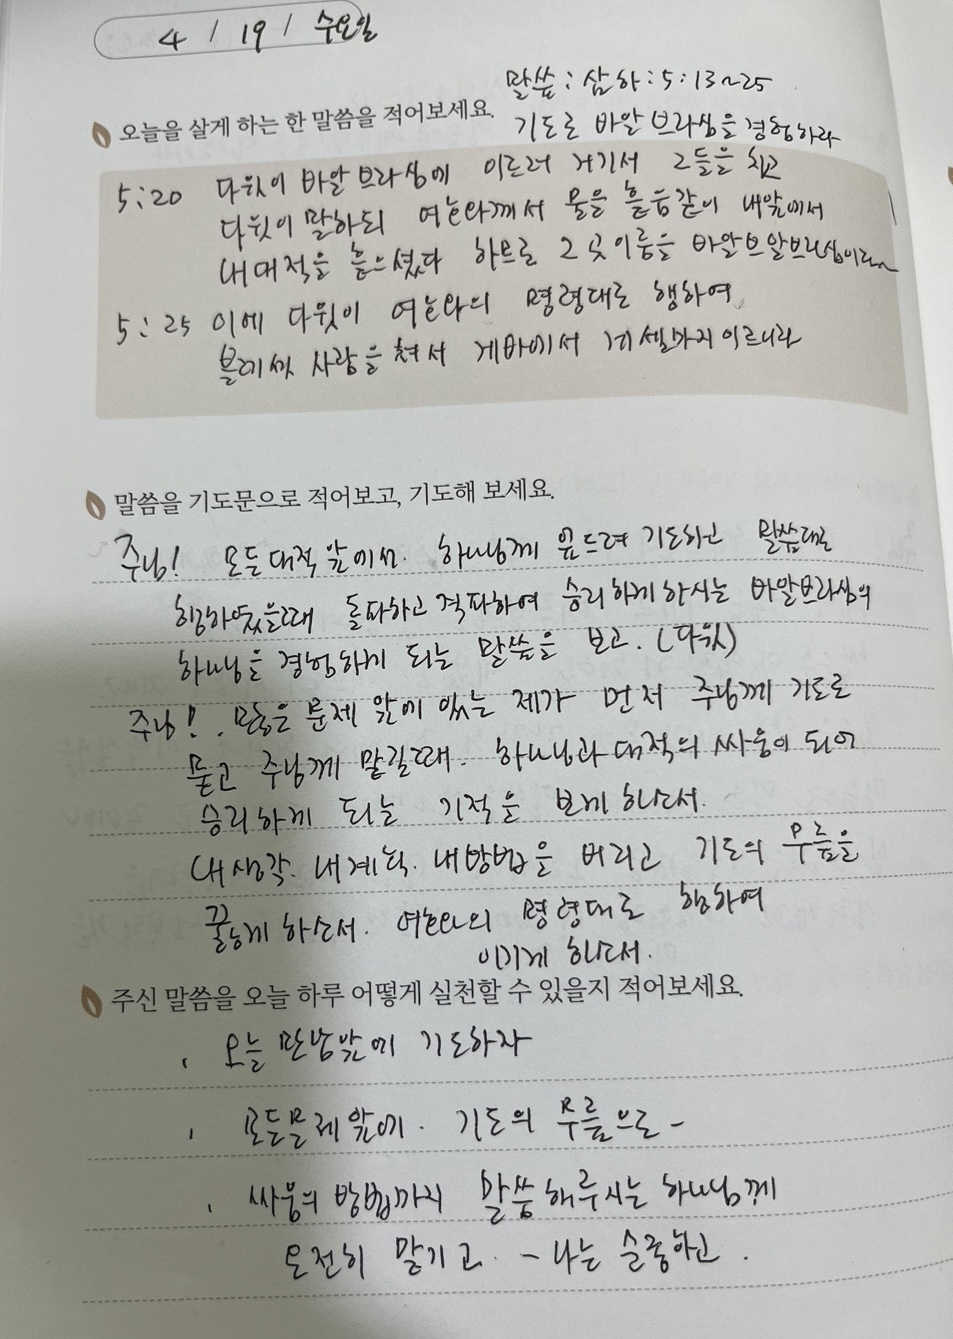 4 / 19 / 수요일
말씀 : 삼하 : 5 : 13~25
오늘을 살게 하는 한 말씀을 적어보세요.
기도로 바알브라심을 경험하라
5:20 다윗이 바알브라심에 이르러 거기서 그들을 치고
다윗이 말하되 여호와께서 물을 흩음같이 내앞에서
내대적을 흩으셨다 하므로 그곳이름을 바알브알브라심이라
5:25 이에 다윗이 여호와의 명령대로 행하여
블레셋 사람을 쳐서 게바에서 게셀까지이르니라
말씀을 기도문으로 적어보고, 기도해 보세요.
주님! 모든대적 앞에서. 하나님께 엎드려 기도하고 말씀대로
행하였을때 돌파하고 격파하여 승리하게하시는 바알브라심의
하나님을 경험하게 되는 말씀을 보고. (다윗)
주님!. 많은 문제 앞에 있는 제가 먼저 주님께 기도로
묻고 주님께 맡길때. 하나님과 대적의 싸움이 되어
승리하게 되는 기적을 보게 하소서.
내생각. 내계획. 내방법을 버리고 기도의 무릎을
꿇게 하소서. 여호와의 명령대로 행하여
이기게 하소서.
주신 말씀을 오늘 하루 어떻게 실천할 수 있을지 적어보세요.
오늘 만남앞에 기도하자
모든문제앞에. 기도의 무릎으로 -
싸움의 방법까지 말씀해주시는 하나님께
온전히 맡기고. - 나는 순종하고.